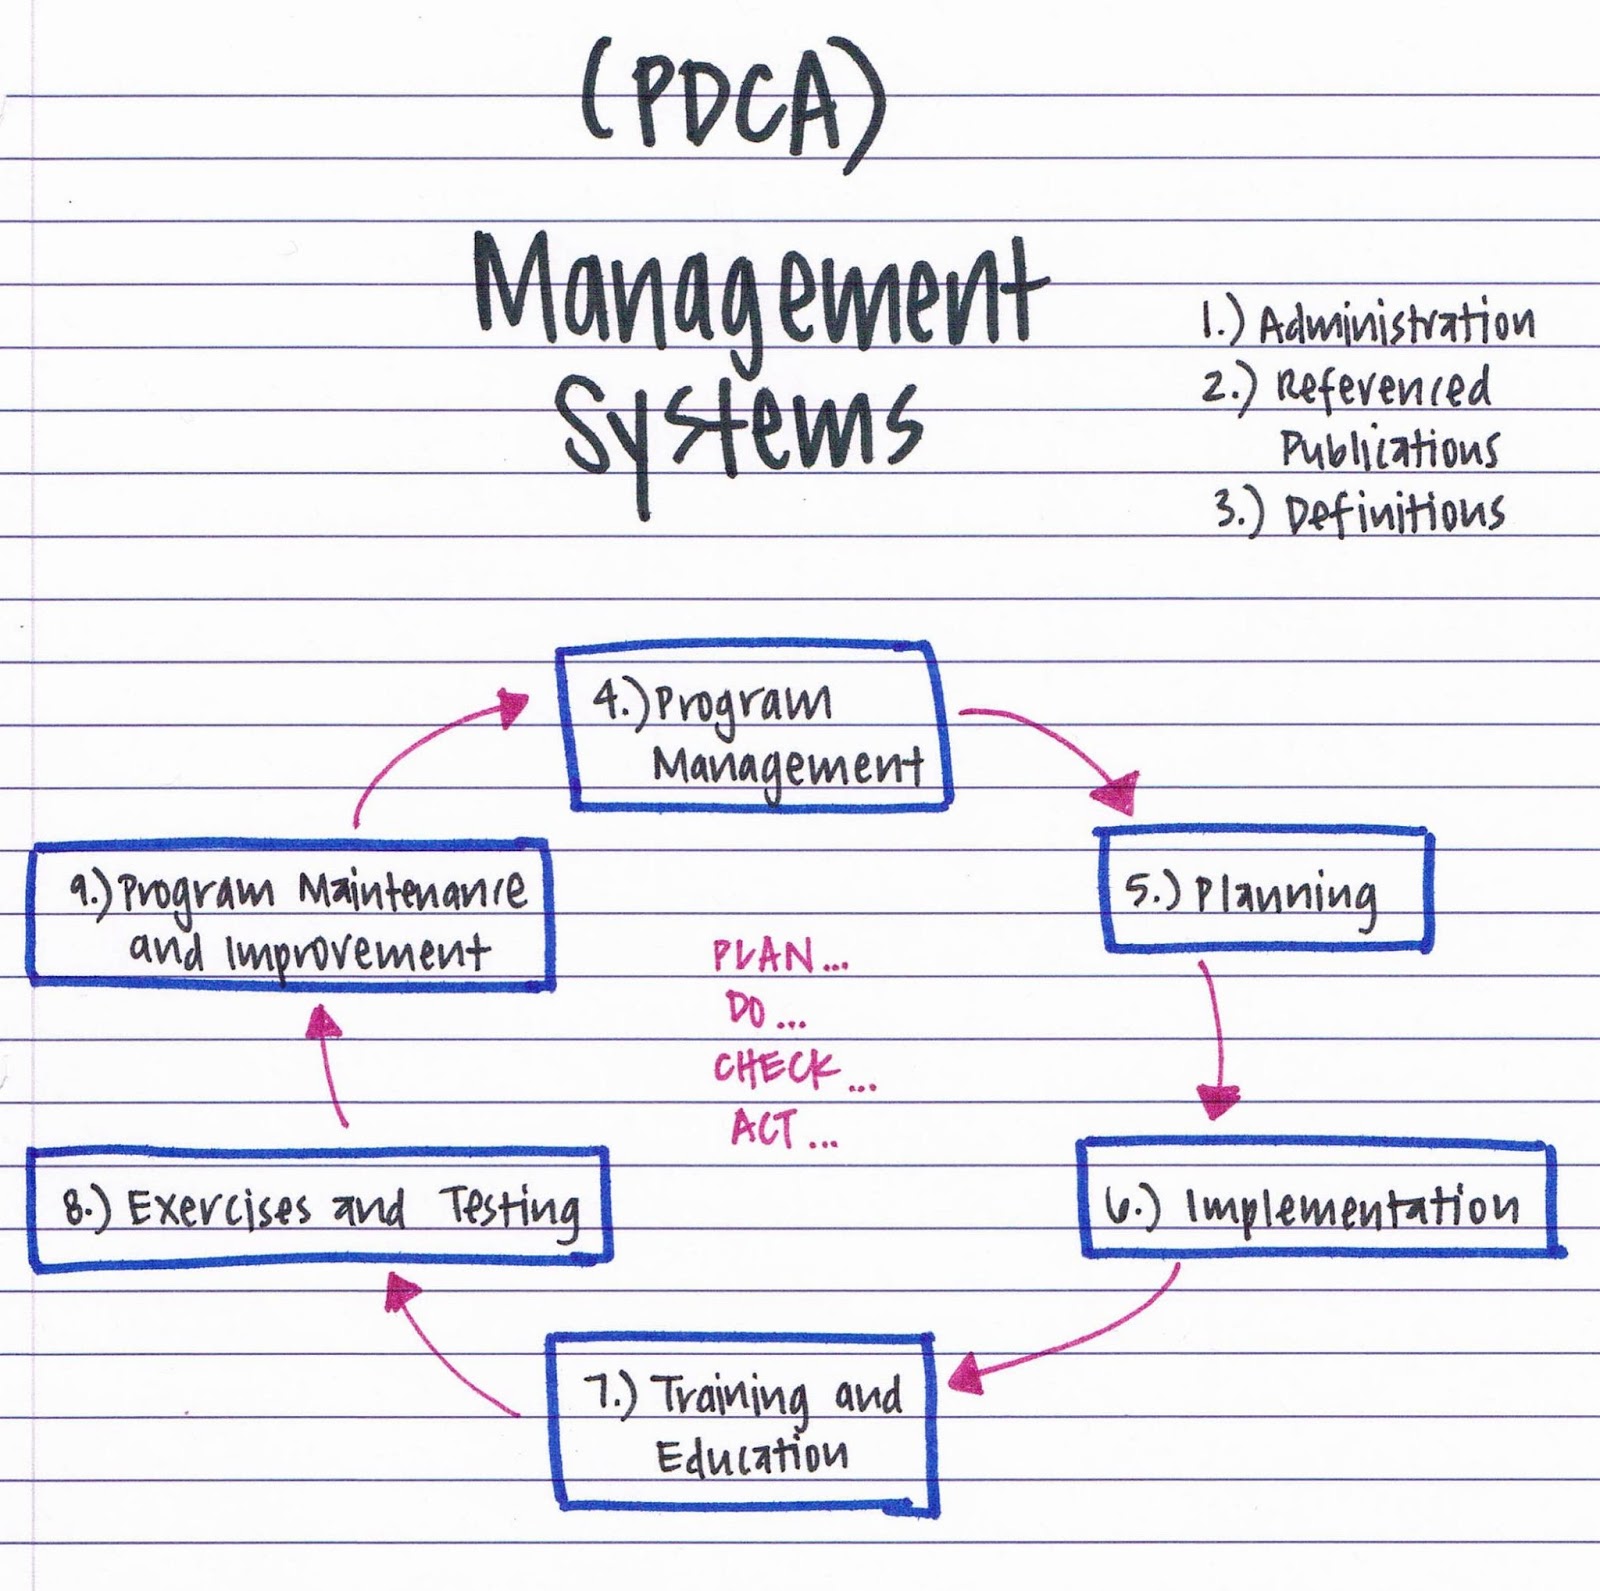 (PDCA)
Management
Systems
1.) Administration
2.) Referenced
Publications
3.) Definitions
4.) Program
Management
5.) Planning
6.) Implementation
7.) Training and
Education
8.) Exercises and Testing
9.) Program Maintenance
and Improvement
PLAN...
DO...
CHECK...
ACT...